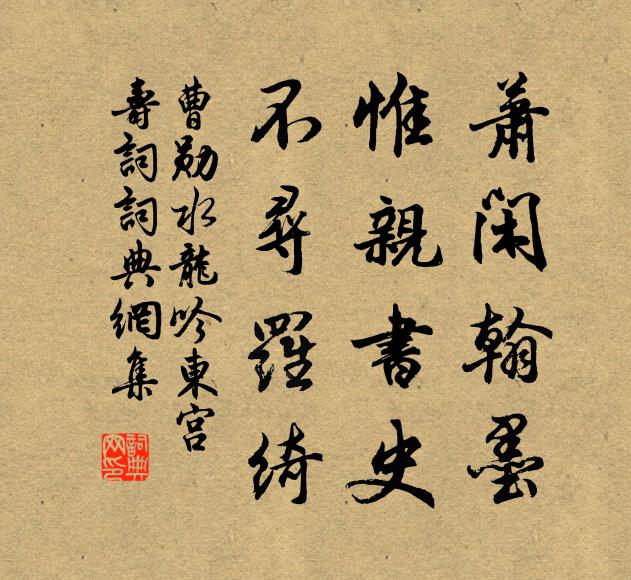 蕭閑翰墨
惟親書史
不尋羅綺
曹勛水龍吟東宮
壽詞詞典網集
詞典网印